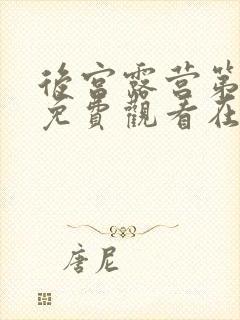 後宮露营第
免費觀看在
唐尼